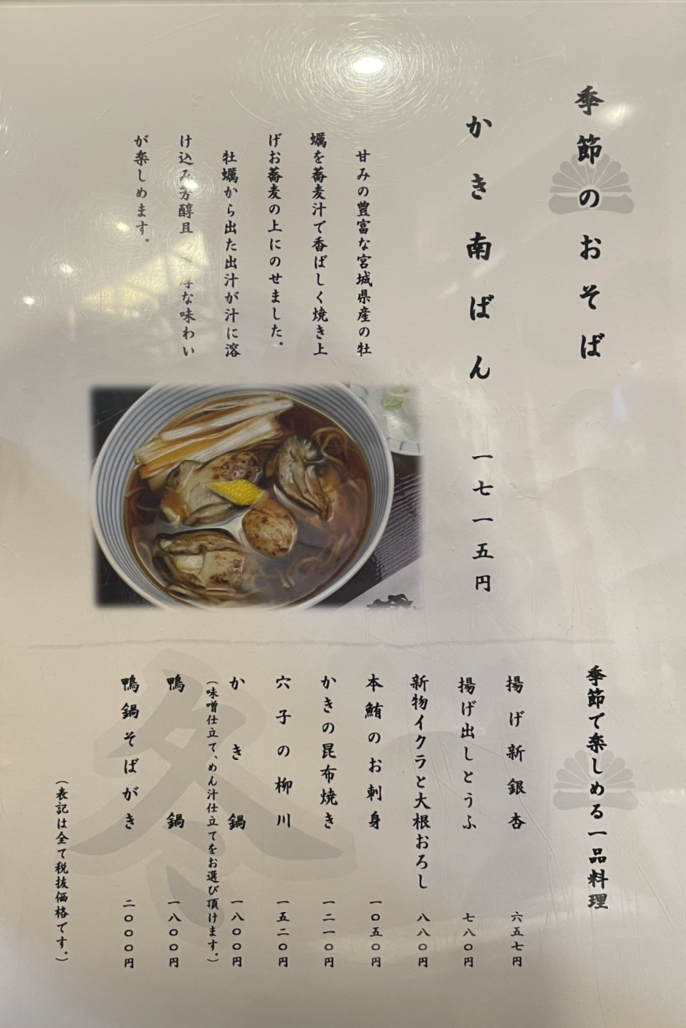 季節のおそば
かき南ばん 一七一五円
甘みの豊富な宮城県産の牡
蠣を蕎麦汁で香ばしく焼き上
げお蕎麦の上にのせました。
牡蠣から出た出汁が汁に溶
け込み芳醇且つ 厚な味わい
が楽しめます。
季節で楽しめる一品料理
揚げ新銀杏 六五七円
揚げ出しとうふ 七八〇円
新物イクラと大根おろし 八八〇円
本鮪のお刺身 一〇五〇円
かきの昆布焼き 一二一〇円
穴子の柳川 一五二〇円
かき鍋 一八〇〇円
(味噌仕立て、めん汁仕立てをお選び頂けます。)
鴨鍋 一八〇〇円
鴨鍋そばがき 二〇〇〇円
(表記は全て税抜価格です。)
冬